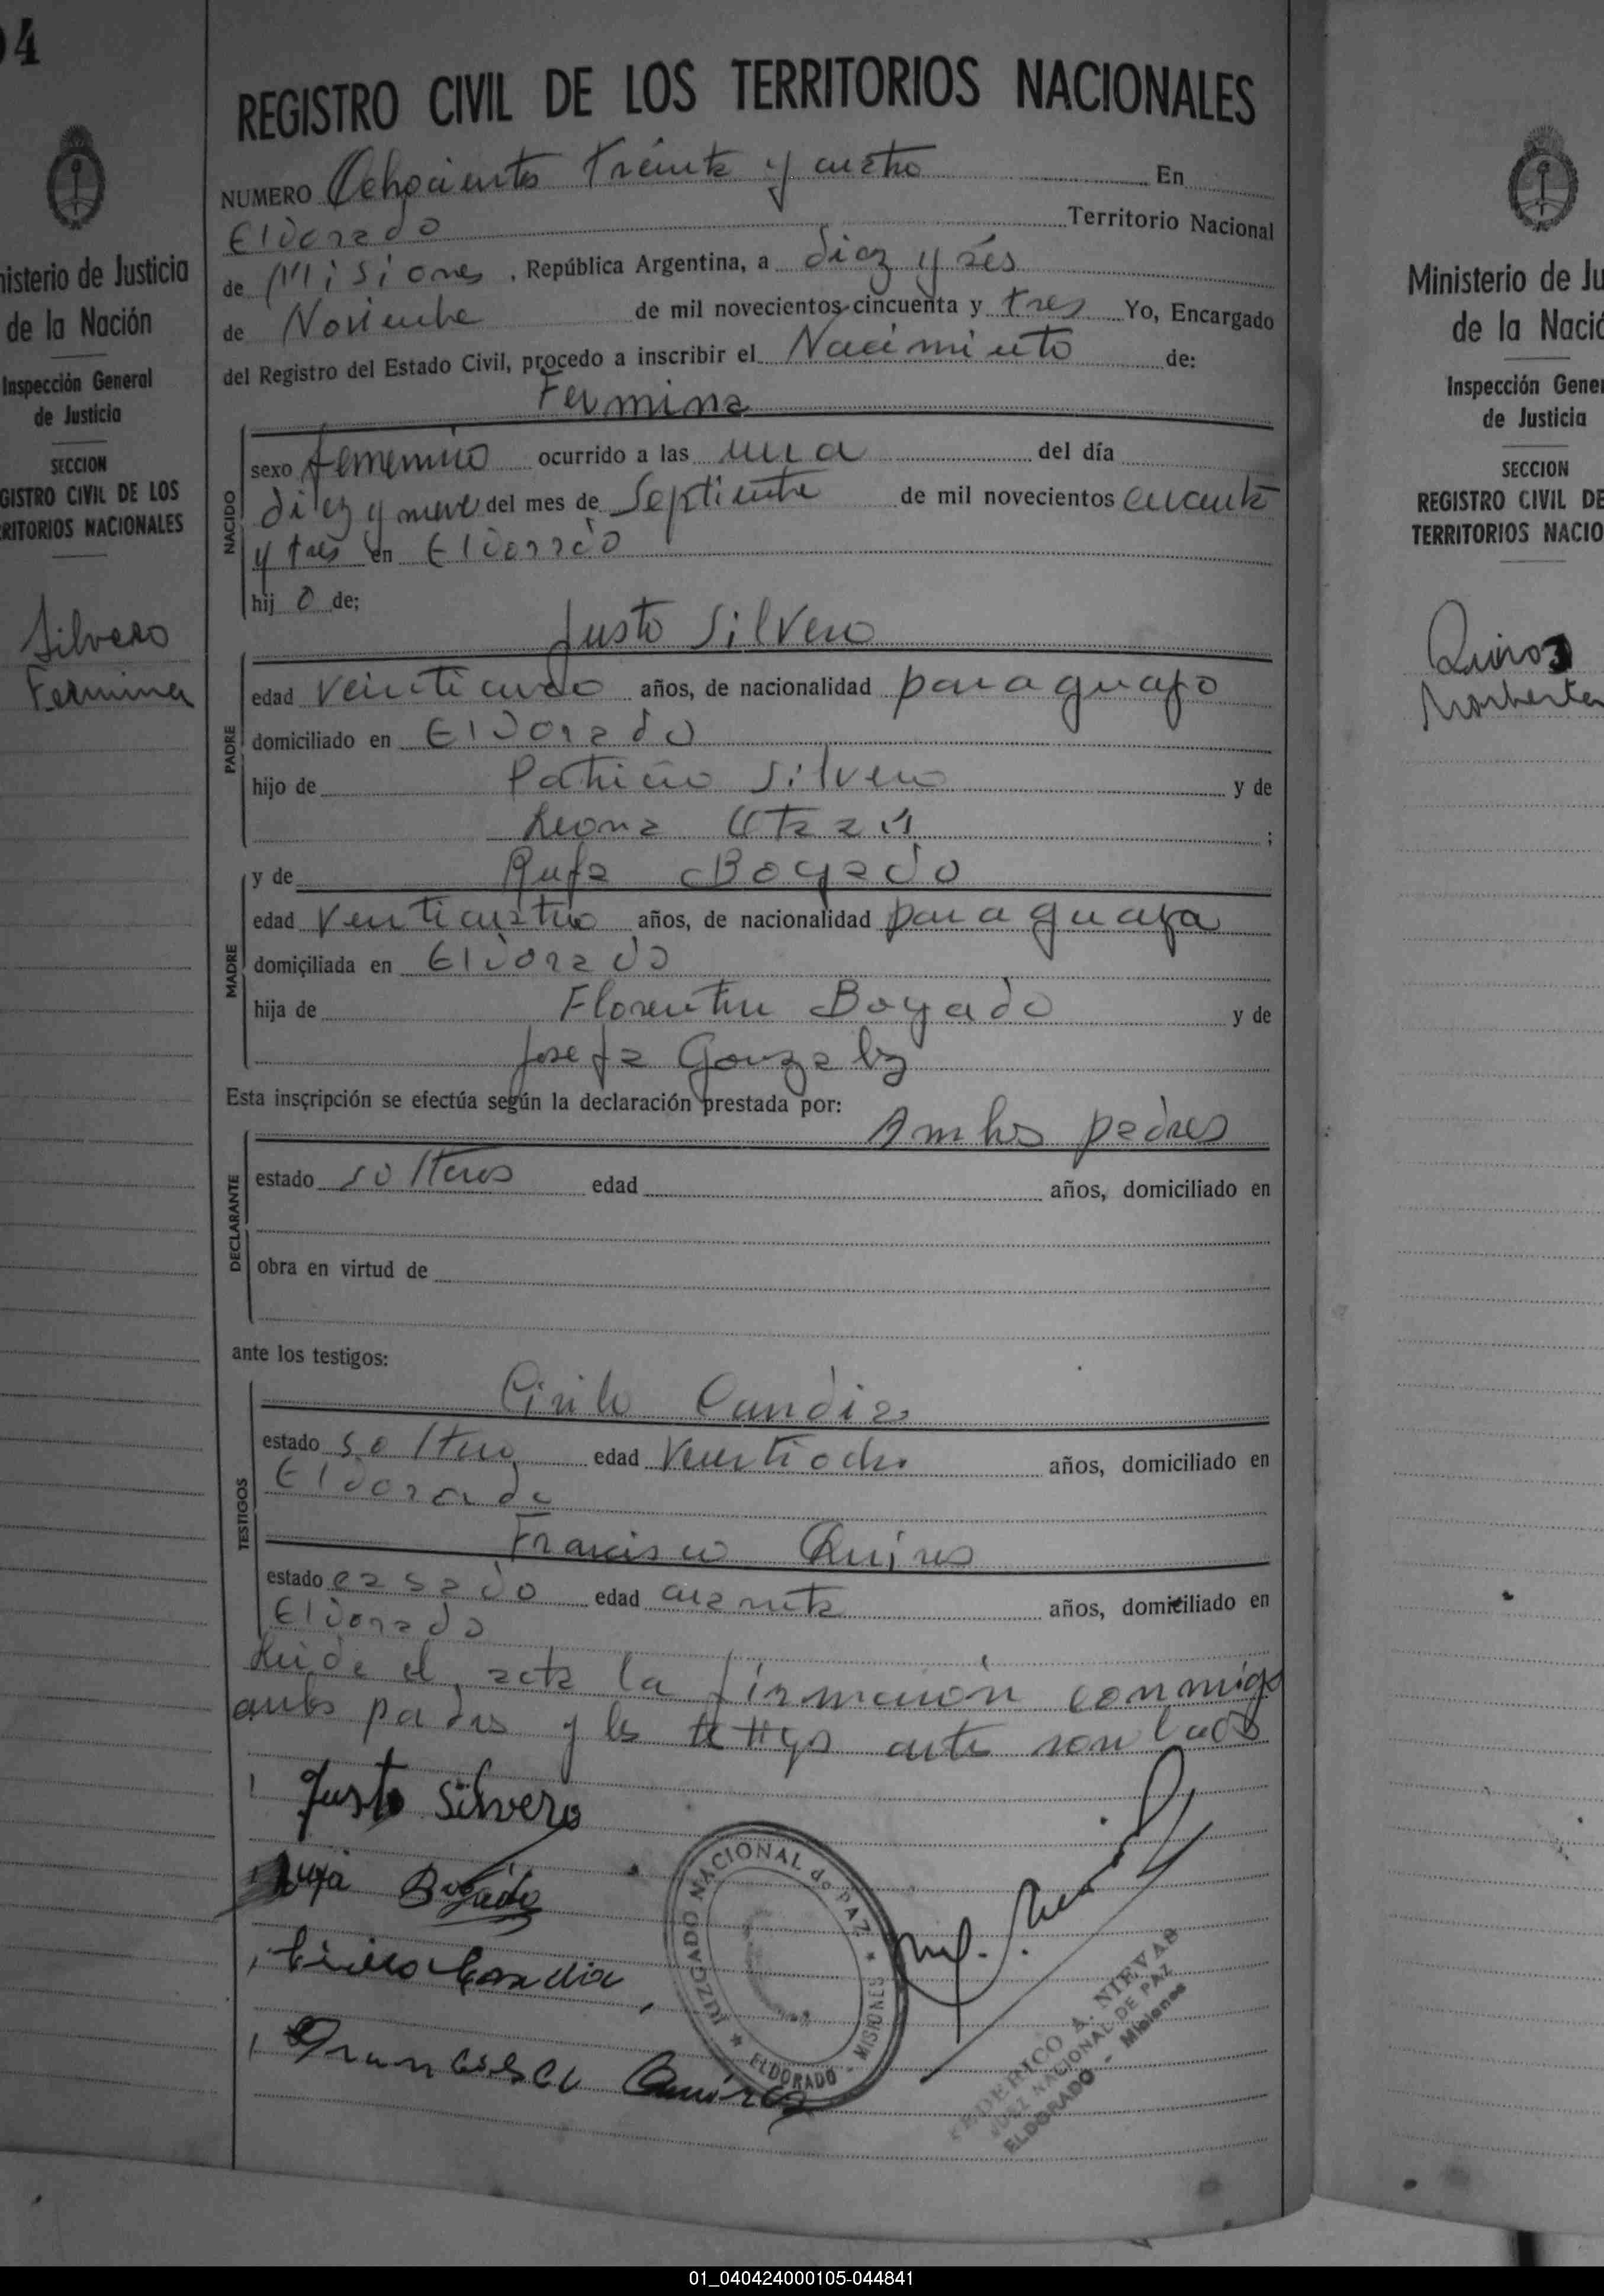 04
REGISTRO CIVIL DE LOS TERRITORIOS NACIONALES
NUMERO Ochociento treinta y cuatro En
Eldorado Territorio Nacional
de Misiones, República Argentina, a diez y séis
de Noviembre de mil novecientos cincuenta y tres Yo, Encargado
del Registro del Estado Civil, procedo a inscribir el Nacimiento de:
Fermina
NACIDO
sexo femenino ocurrido a las una del día
diez y nueve del mes de Septiembre de mil novecientos
y tres en Eldorado
hij o de;
Justo Silvero
PADRE
edad años, de nacionalidad paraguayo
domiciliado en Eldorado
hijo de Patricio Silvero y de
Leona ;
y de Rufa Bogado
MADRE
edad venticuatro años, de nacionalidad paraguaya
domiciliada en Eldorado
hija de Florentin Bogado y de
Josefa Gonzalez
Esta inscripción se efectúa según la declaración prestada por:
Ambos padres
DECLARANTE
estado solteros edad años, domiciliado en
obra en virtud de
ante los testigos:
Cirilo Candia
TESTIGOS
estado soltero edad Ventiocho años, domiciliado en
Eldorado
Francisco Quiros
estado casado edad cuarenta años, domiciliado en
Eldorado
Leida el acta la firmaron conmigo
ambos padres y los testigos
Justo Silvero
Rufa Bogado
Cirilo Candia
Francisco
JUZGADO NACIONAL de PAZ
ELDORADO - MISIONES
FEDERICO A. NIEVAS
JUEZ NACIONAL DE PAZ
ELDORADO - Misiones
nisterio de Justicia
de la Nación
Inspección General
de Justicia
SECCION
GISTRO CIVIL DE LOS
RITORIOS NACIONALES
Silvero
Fermina
Ministerio de Ju
de la Nació
Inspección Gene
de Justicia
SECCION
REGISTRO CIVIL DE
TERRITORIOS NACIO
Quiroz
Norberta
01_040424000105-044841